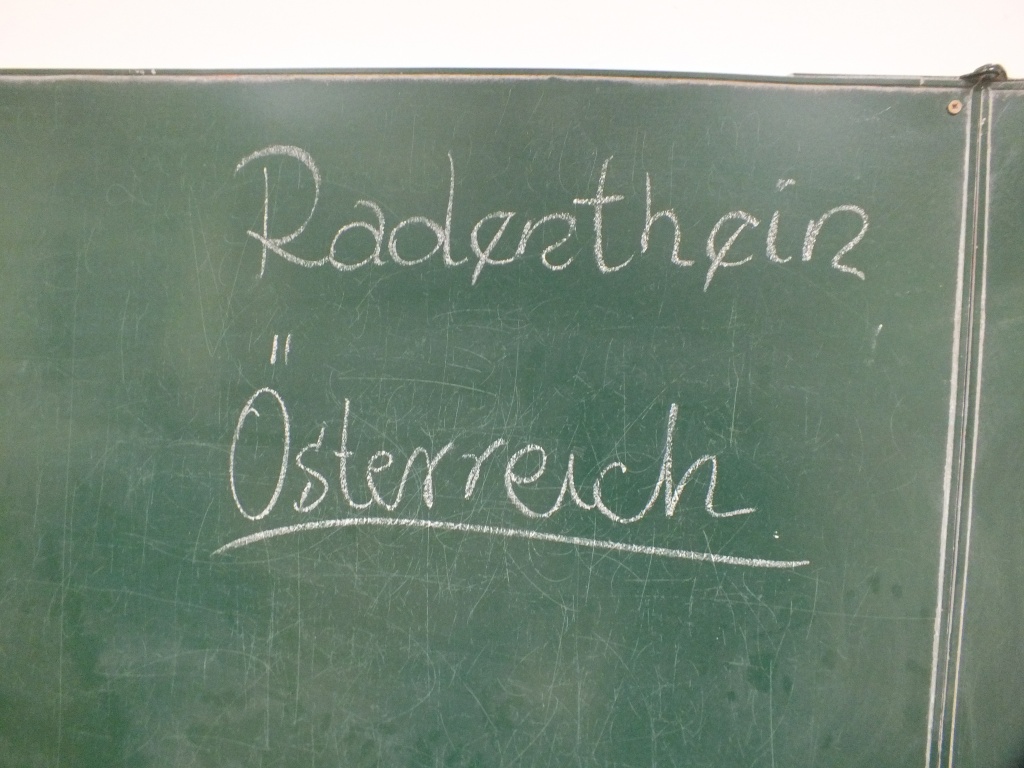 Radenthein
Österreich